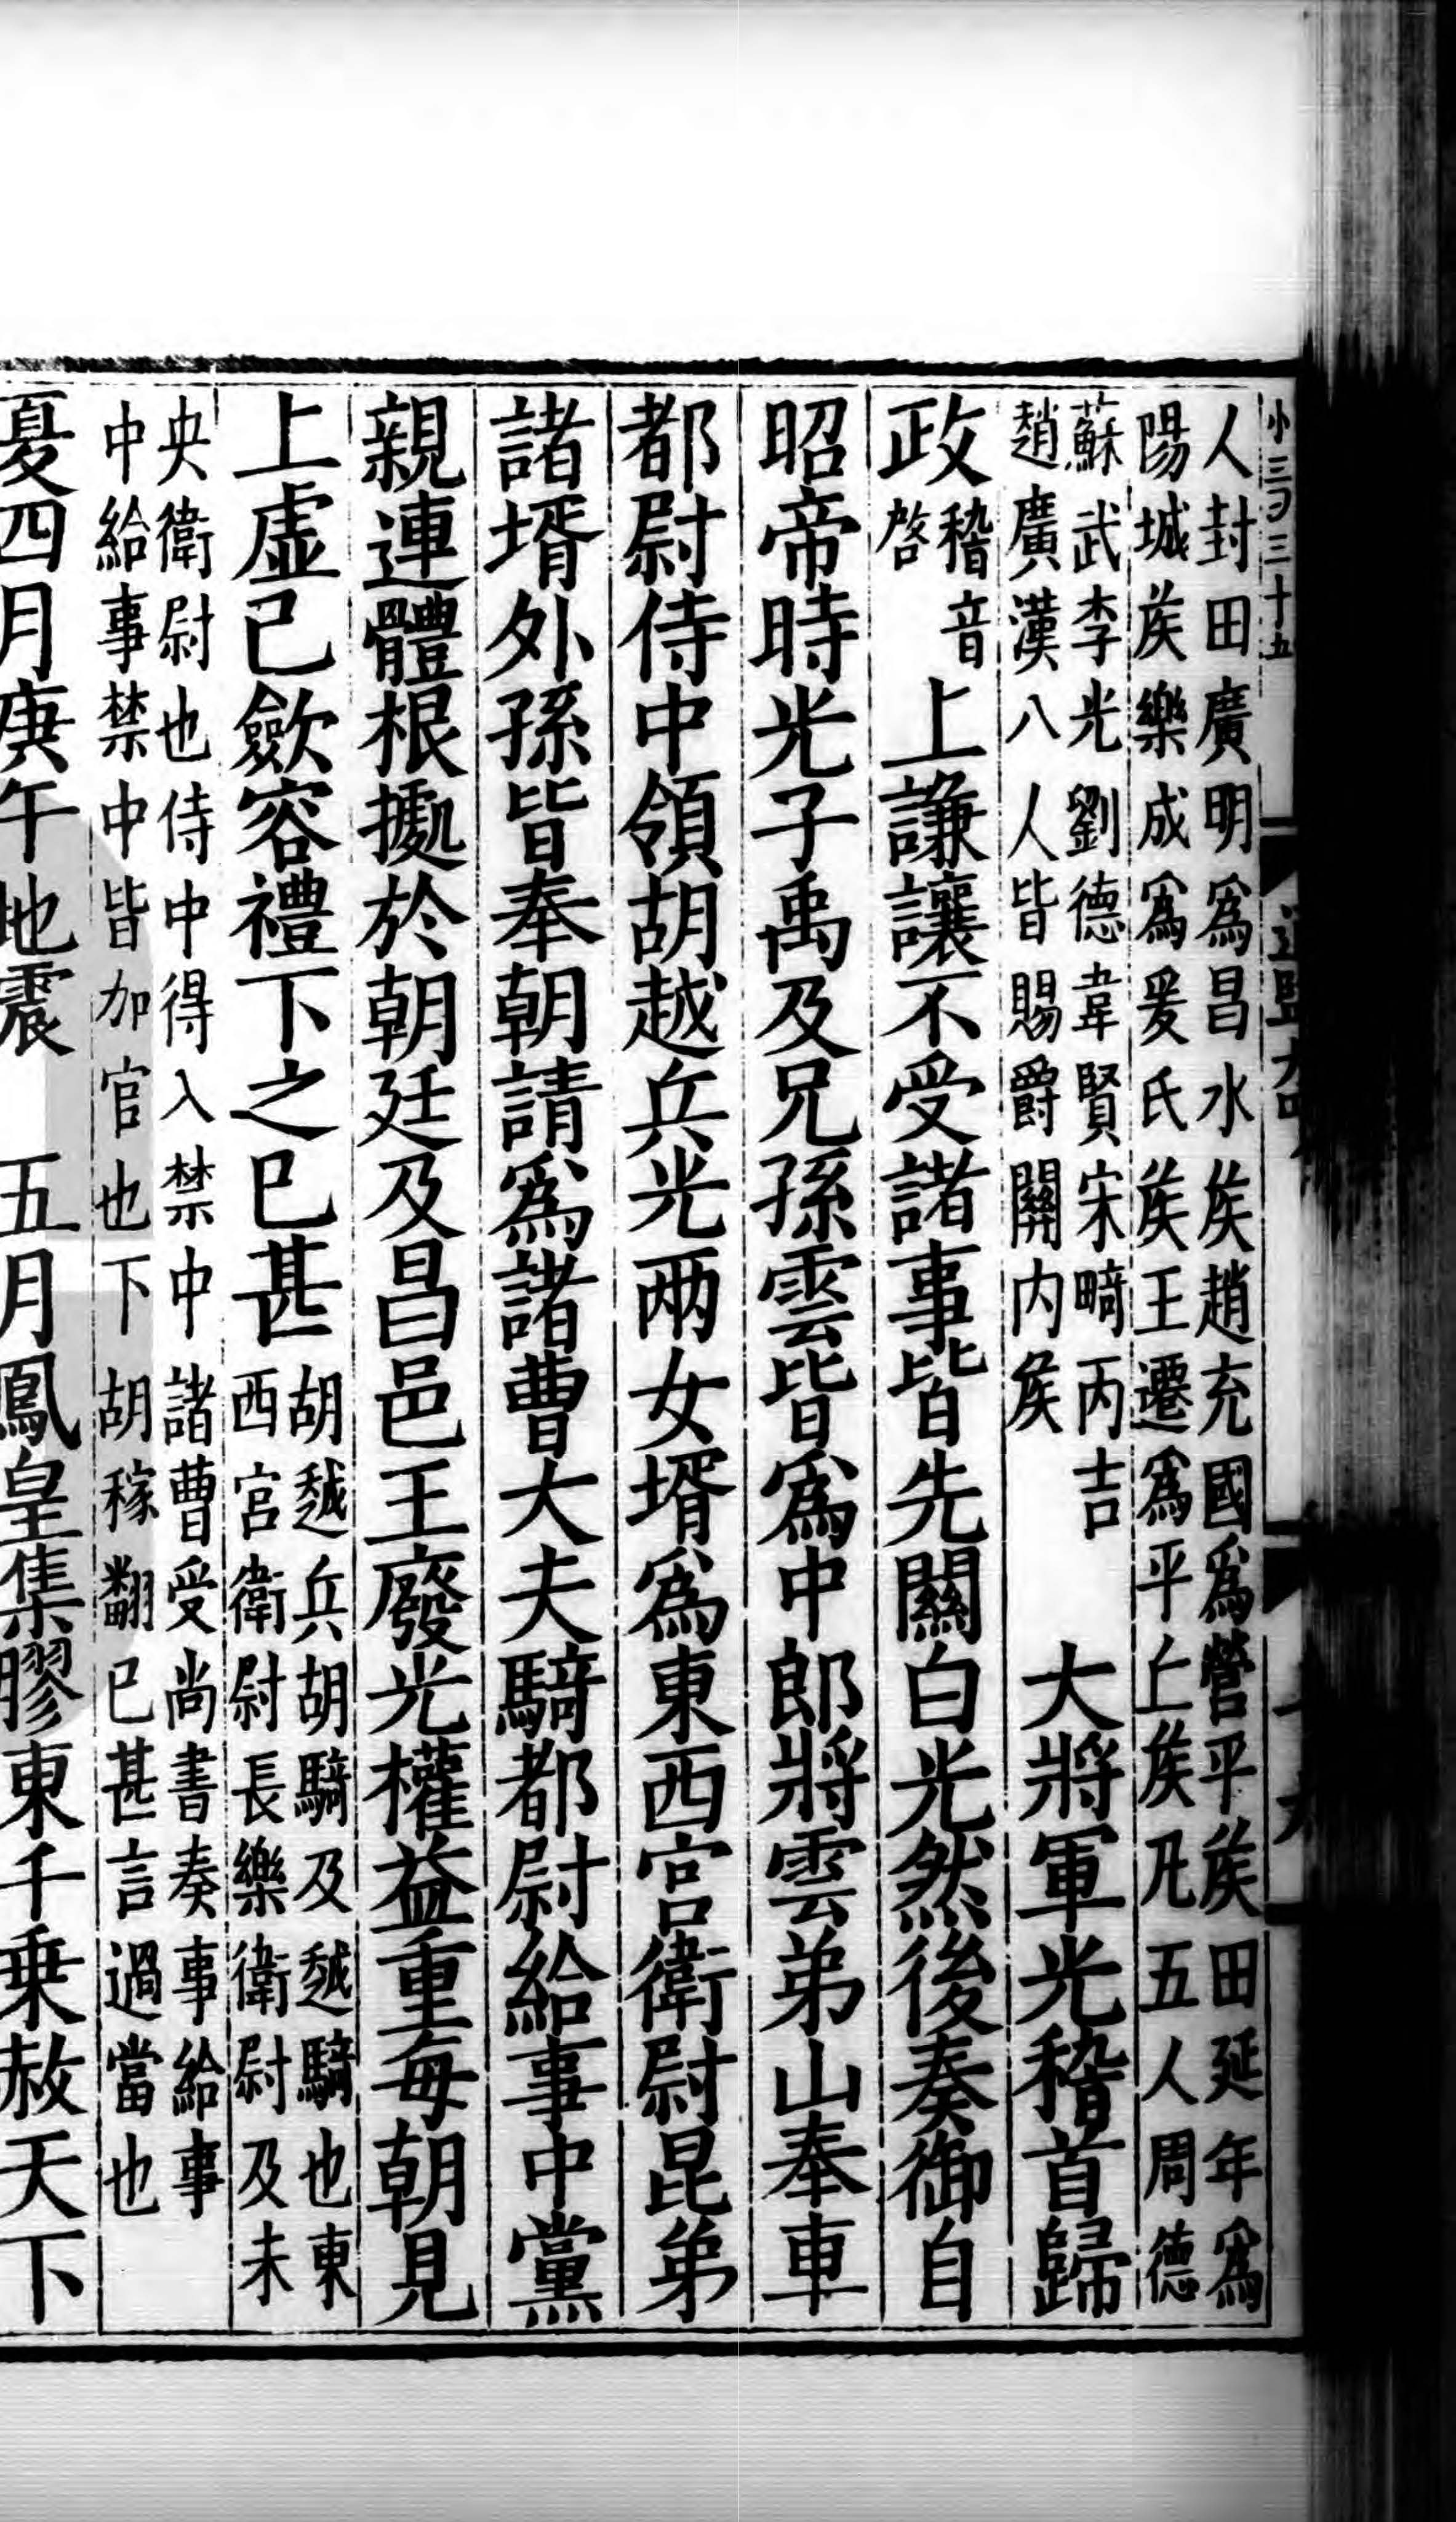 小三百三十五
人封田廣明爲昌水矦趙充國爲營平矦田延年爲
陽城矦樂成爲爰氏矦王遷爲平丘矦凡五人周德
蘇武李光劉德韋賢宋畸丙吉
趙廣漢八人皆賜爵關内矦
大將軍光稽首歸
政
稽音
啓
上謙讓不受諸事皆先關白光然後奏御自
昭帝時光子禹及兄孫雲皆爲中郎將雲弟山奉車
都尉侍中領胡越兵光兩女壻爲東西宫衛尉昆弟
諸壻外孫皆奉朝請爲諸曹大夫騎都尉給事中黨
親連體根據於朝廷及昌邑王廢光權益重每朝見
上虛己歛容禮下之已甚
胡越兵胡騎及越騎也東
西宫衛尉長樂衛尉及未
央衛尉也侍中得入禁中諸曹受尚書奏事給事
中給事禁中皆加官也下胡稼翻已甚言過當也
夏四月庚午地震 五月鳳皇集膠東千乗赦天下